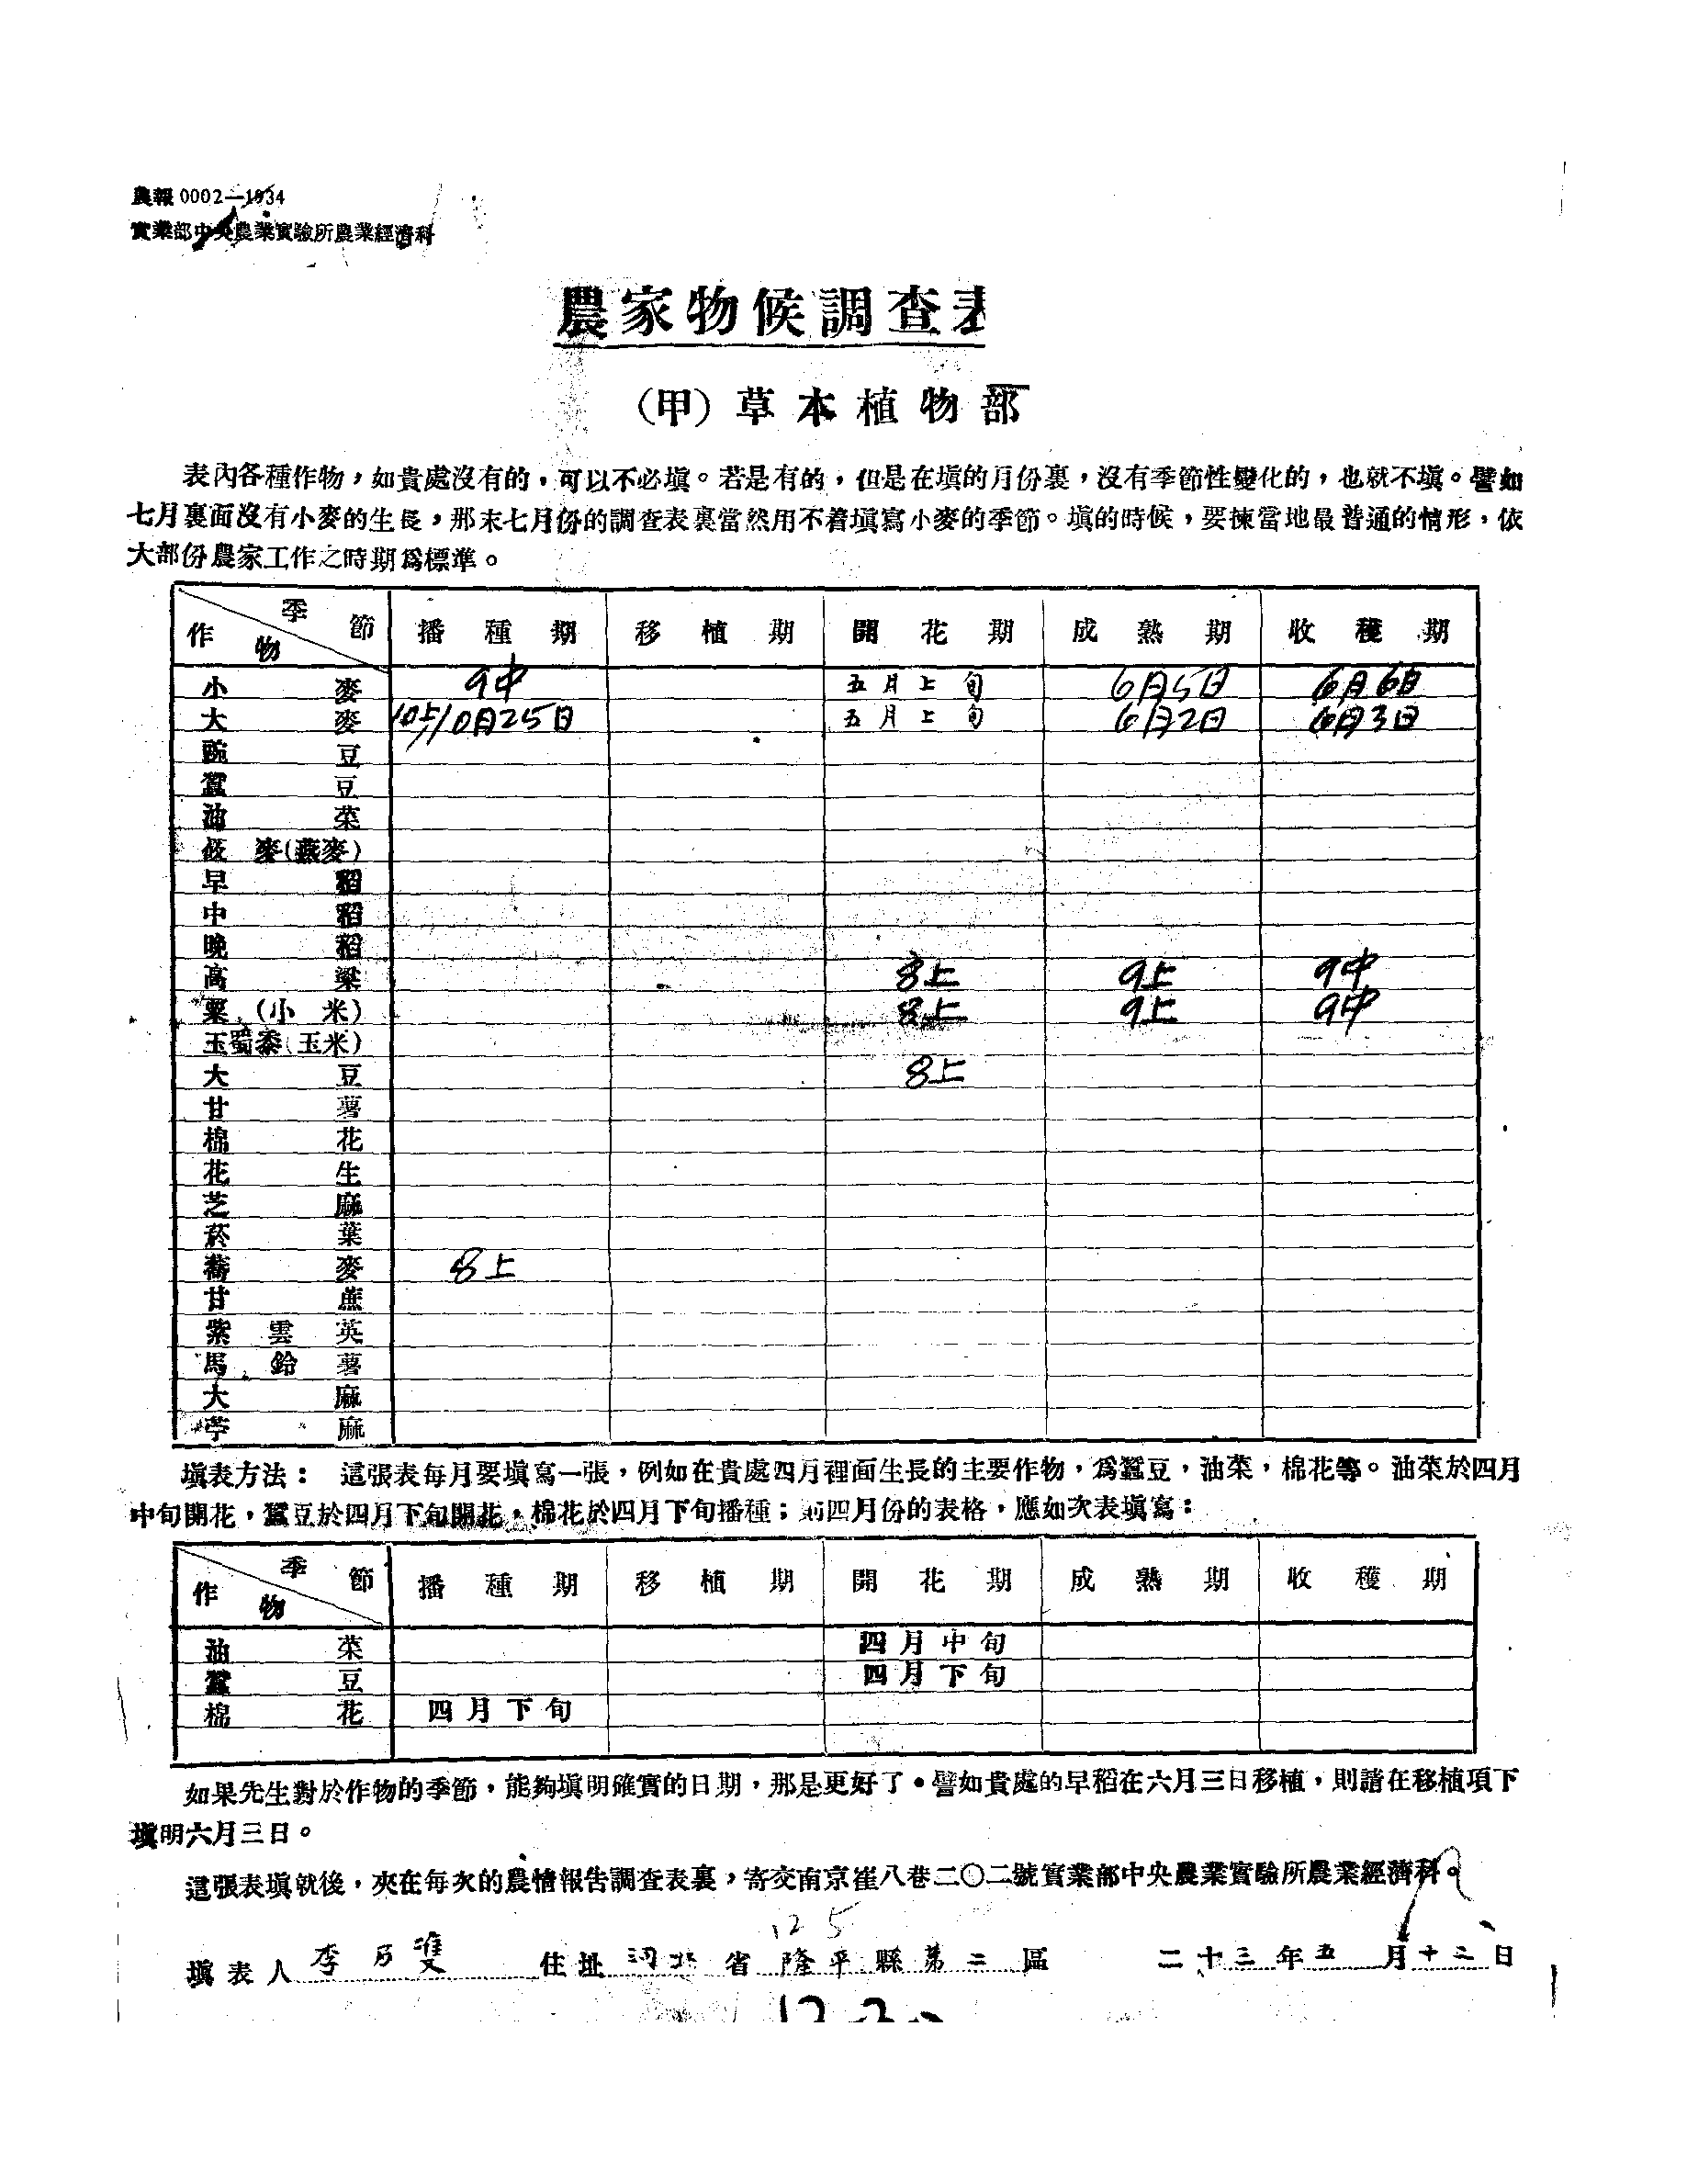 農報 0002—1934
實業部中央農業實驗所農業經濟科
農家物候調查表
(甲) 草本植物部
表內各種作物，如貴處沒有的，可以不必塡。若是有的，但是在塡的月份裏，沒有季節性變化的，也就不塡。譬如
七月裏面沒有小麥的生長，那末七月份的調查表裏當然用不着塡寫小麥的季節。塡的時候，要揀當地最普通的情形，依
大部份農家工作之時期爲標準。
作物 季節 播種期 移植期 開花期 成熟期 收穫期
小麥 9中 五月上旬 6月5日 6月6日
大麥 10上 10月25日 五月上旬 6月2日 6月3日
豌豆
蠶豆
油菜
莜麥(燕麥)
早稻
中稻
晚稻
高粱 8上 9上 9中
粟(小米) 8上 9上 9中
玉蜀黍(玉米)
大豆 8上
甘薯
棉花
花生
芝麻
菸葉
蕎麥 8上
甘蔗
紫雲英
馬鈴薯
大麻
苧麻
塡表方法： 這張表每月要塡寫一張，例如在貴處四月裡面生長的主要作物，爲蠶豆，油菜，棉花等。油菜於四月
中旬開花，蠶豆於四月下旬開花，棉花於四月下旬播種；則四月份的表格，應如次表塡寫：
作物 季節 播種期 移植期 開花期 成熟期 收穫期
油菜 四月中旬
蠶豆 四月下旬
棉花 四月下旬
如果先生對於作物的季節，能夠塡明確實的日期，那是更好了。譬如貴處的早稻在六月三日移植，則請在移植項下
塡明六月三日。
這張表塡就後，夾在每次的農情報告調查表裏，寄交南京崔八巷二〇二號實業部中央農業實驗所農業經濟科。
125
塡表人 李 雙 住址 河北省 隆平縣第二區 二十三年五月十二日